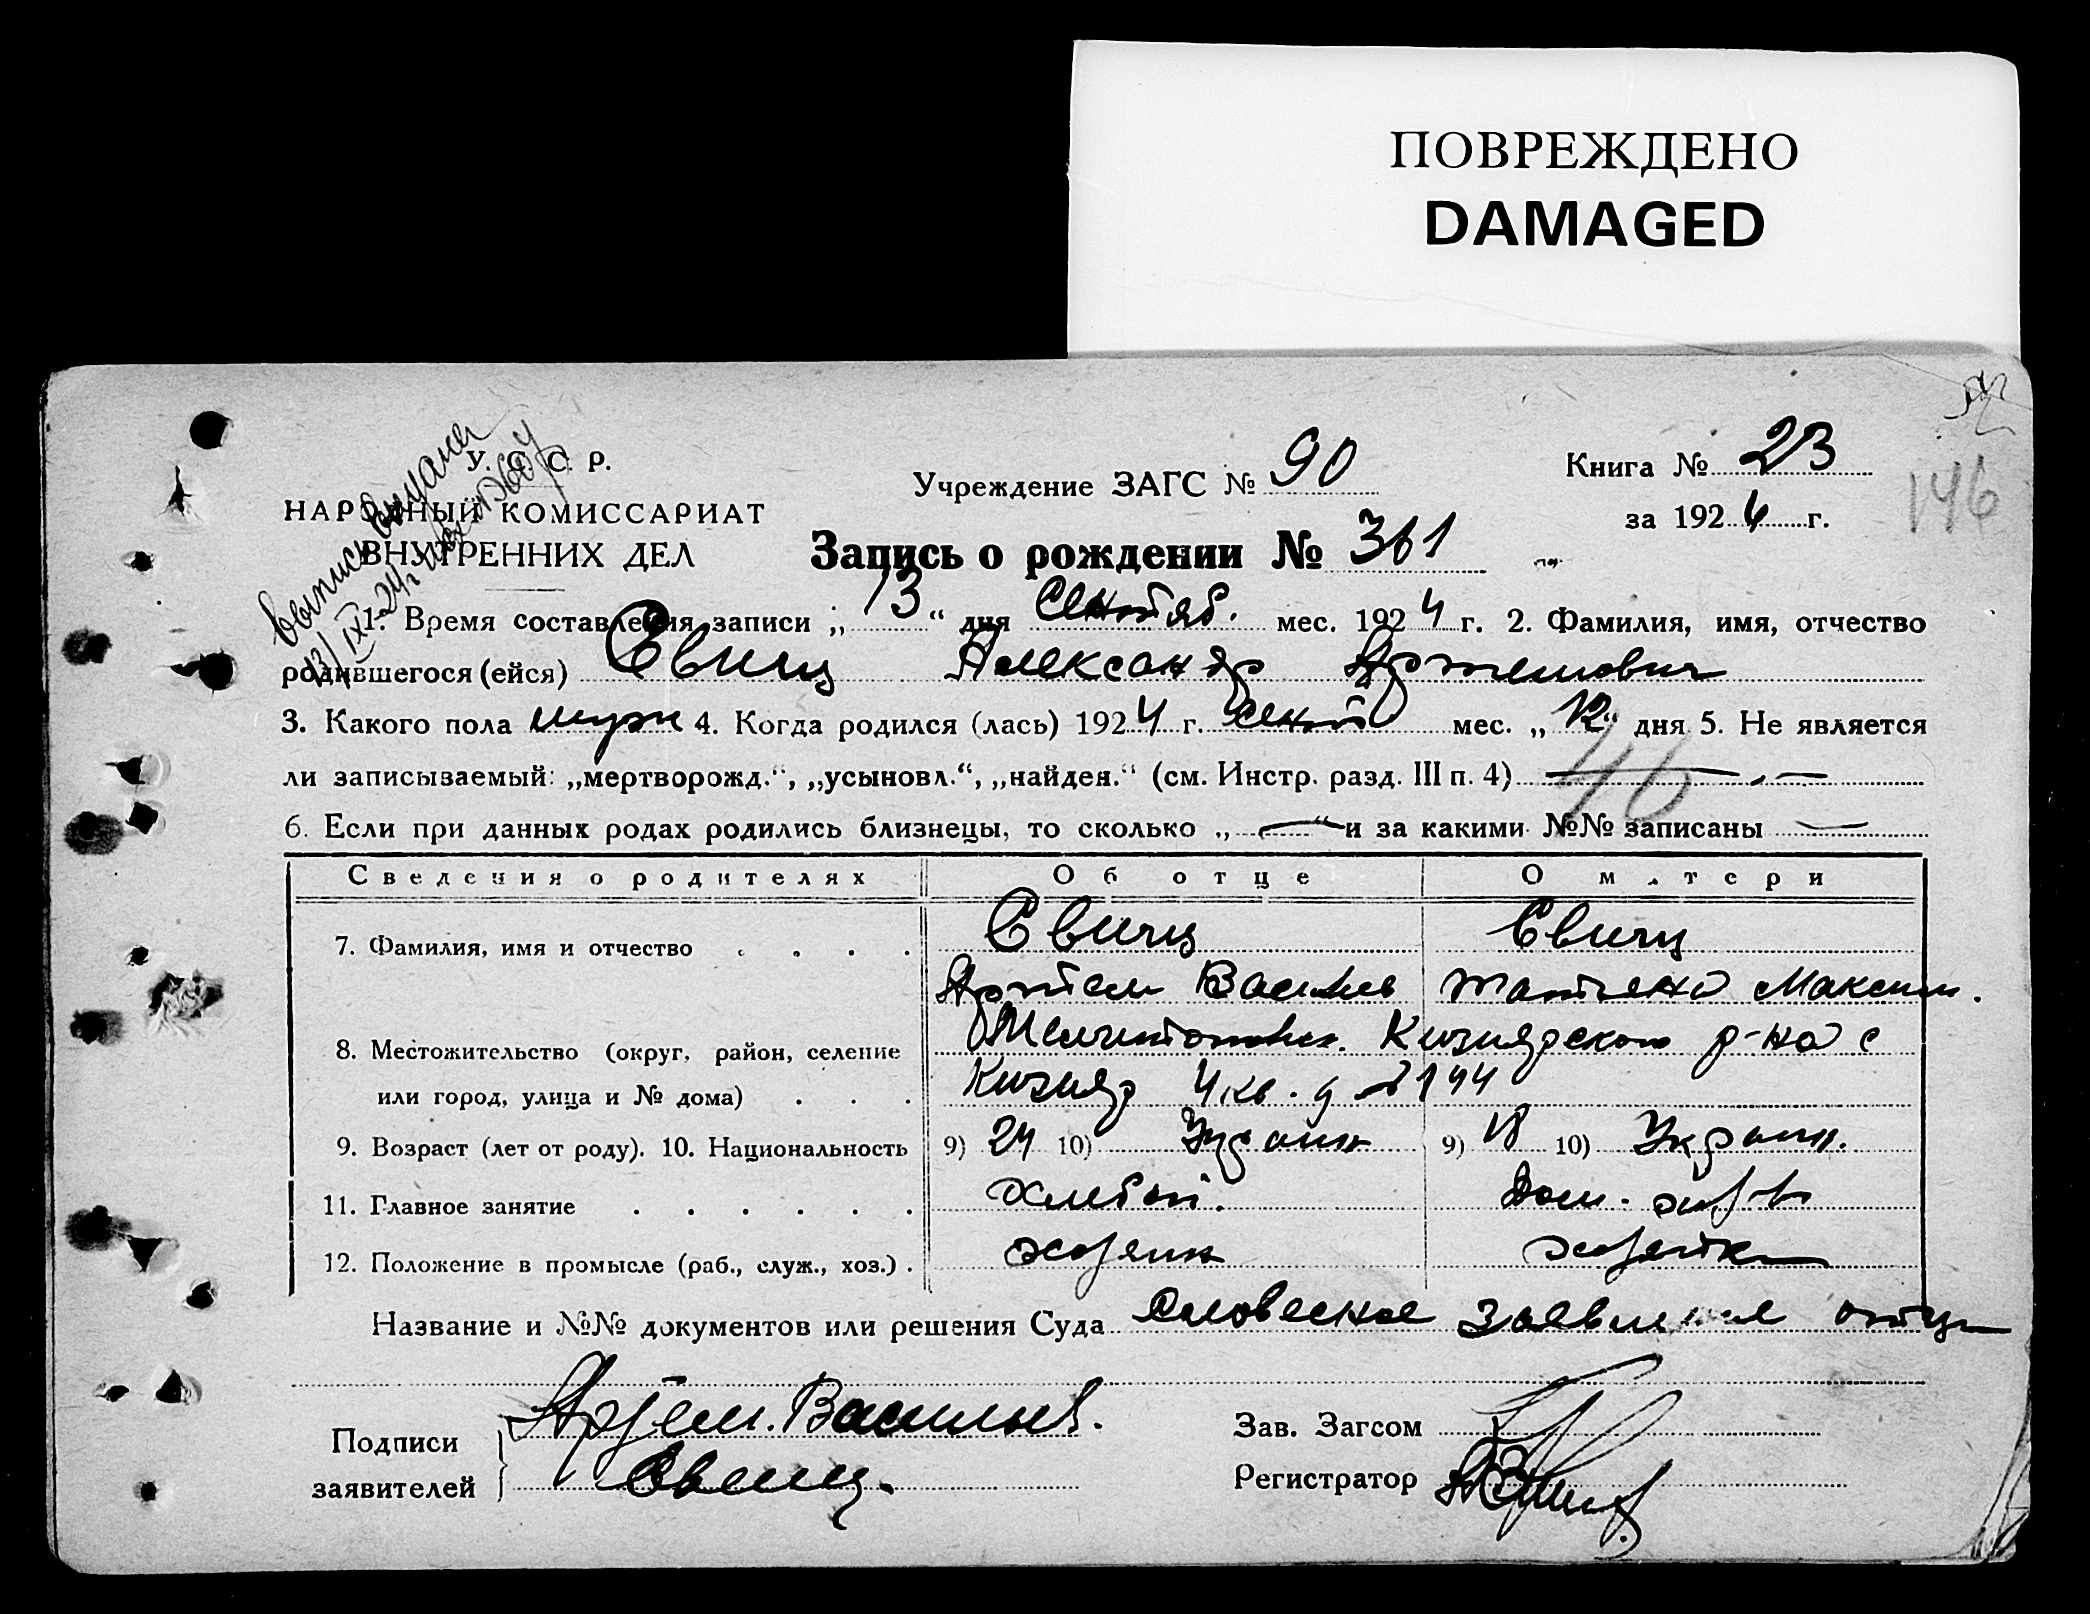 ПОВРЕЖДЕНО
DAMAGED
У. С. С. Р.
НАРОДНЫЙ КОМИССАРИАТ
ВНУТРЕННИХ ДЕЛ
выпись выдана
13/IX-24г.
Учреждение ЗАГС № 90
Книга № 23
за 1924 г.
146
Запись о рождении № 361
1. Время составления записи „13“ дня Сентяб. мес. 1924 г. 2. Фамилия, имя, отчество
родившегося (ейся) Евищ Александр Артемович
3. Какого пола муж 4. Когда родился (лась) 1924 г. Сент мес. „12“ дня 5. Не является
ли записываемый: „мертворожд.“, „усыновл.“, „найден.“ (см. Инстр. разд. III п. 4) —
46
6. Если при данных родах родились близнецы, то сколько „—“ и за какими №№ записаны —
Сведения о родителях Об отце О матери
7. Фамилия, имя и отчество Евищ Евищ
Артем Василь Татьяна Максим.
8. Местожительство (округ, район, селение Мелитопольск. Кизиярского р-на с
или город, улица и № дома) Кизияр 4 кв. д № 194
9. Возраст (лет от роду). 10. Национальность 9) 24 10) Украин 9) 18 10) Украин.
11. Главное занятие хлебоп. Дом. хоз-во
12. Положение в промысле (раб., служ., хоз.) хозяин хозяйка
Название и №№ документов или решения Суда Словесное заявление отца
Подписи
заявителей
Артем. Васильев.
Евищ.
Зав. Загсом
Регистратор